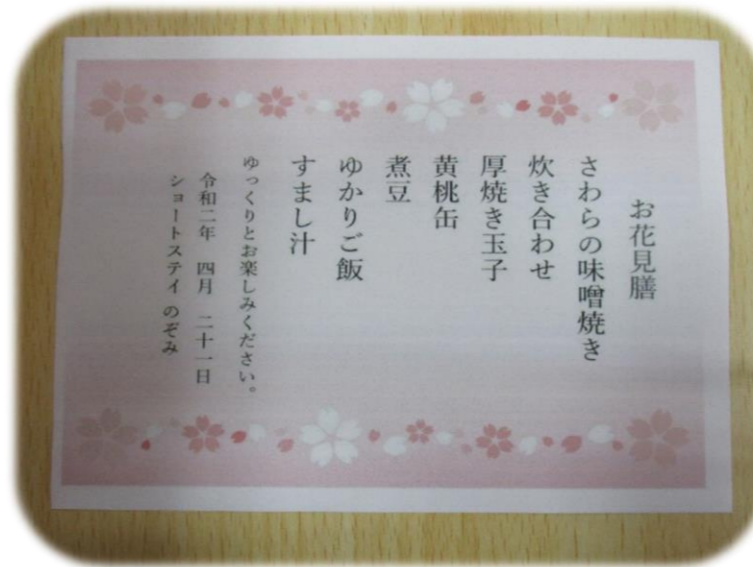 お花見膳
さわらの味噌焼き
炊き合わせ
厚焼き玉子
黄桃缶
煮豆
ゆかりご飯
すまし汁
ゆっくりとお楽しみください。
令和二年　四月　二十一日
ショートステイ のぞみ